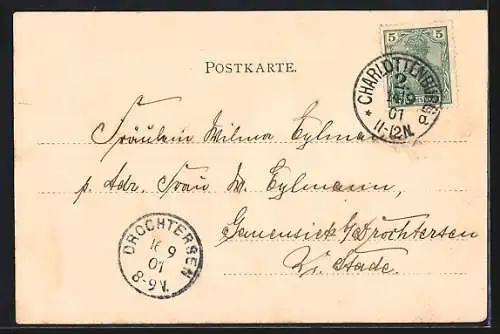 POSTKARTE.
5 5
CHARLOTTENBURG
2
9
01
11-12N.
Fräulein Wilma Eylmann
p. Adr. Frau W. Eylmann,
Gauensiek b/Drochtersen
Kr. Stade.
DROCHTERSEN
9
01
8-9V.